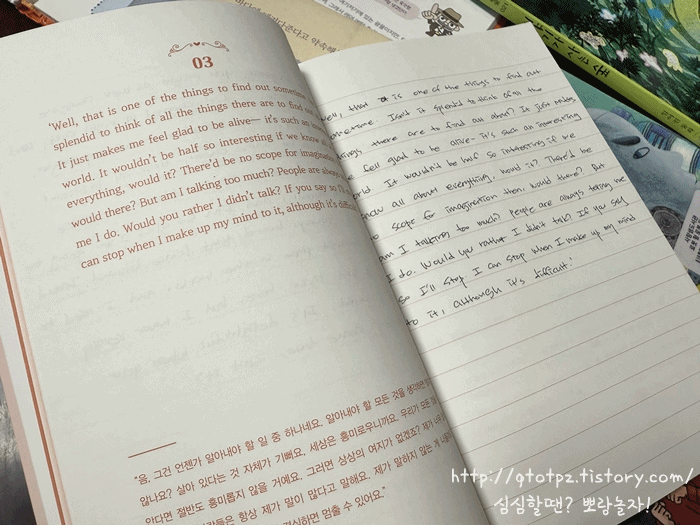 03
'Well, that is one of the things to find out sometime
splendid to think of all the things there are to find
It just makes me feel glad to be alive— it's such an
world. It wouldn't be half so interesting if we know
everything, would it? There'd be no scope for imagination
would there? But am I talking too much? People are always
me I do. Would you rather I didn't talk? If you say so I'll
can stop when I make up my mind to it, although it's
"음, 그건 언젠가 알아내야 할 일 중 하나네요. 알아내야 할 모든 것을
않나요? 살아 있다는 것 자체가 기뻐요. 세상은 흥미로우니까요. 우리가 모든
안다면 절반도 흥미롭지 않을 거예요. 그러면 상상의 여지가 없겠죠? 제가
항상 제가 말이 많다고 말해요. 제가 말하지 않는 게
결심하면 멈출 수 있어요."
well, that is one of the things to find out
sometime. Isn't it splendid to think of all the
things there are to find out about? It just makes
feel glad to be alive- it's such an interesting
world. It wouldn't be half so interesting if we
know all about everything, would it? There'd be
scope for imagination then, would there? But
am I talking too much? People are always telling me
I do. Would you rather I didn't talk? If you say
so I'll stop. I can stop when I make up my mind
to it, although it's difficult.'
http://gtotpz.tistory.com/
심심할땐? 뽀랑놀자!